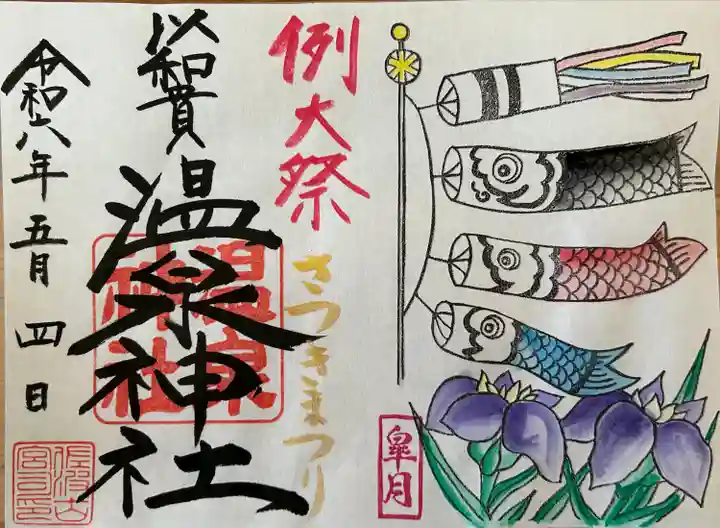 例大祭
さつきまつり
皐月
以和貴
温泉神社
温泉神社
令和六年五月四日